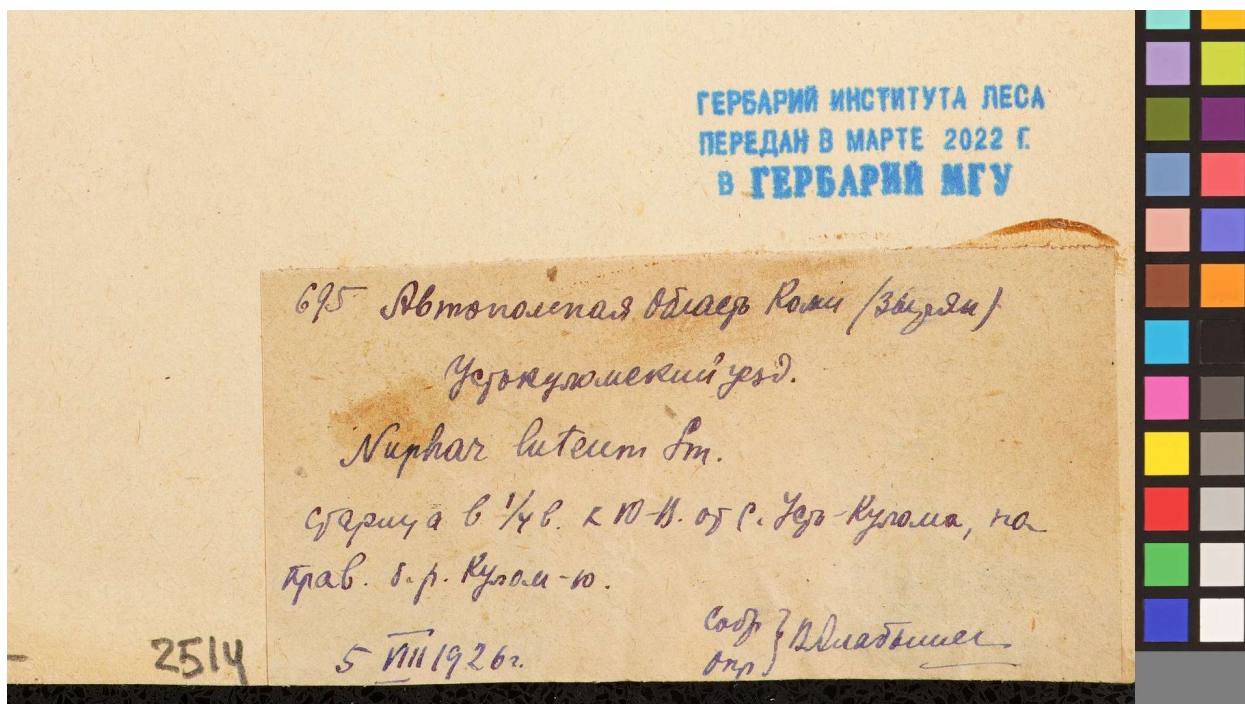 ГЕРБАРИЙ ИНСТИТУТА ЛЕСА
ПЕРЕДАН В МАРТЕ 2022 Г.
В ГЕРБАРИЙ МГУ
695 Автономная Область Коми (Зырян)
Устькуломский уезд.
Nuphar luteum Sm.
старица в 1/4 в. к Ю-В. от с. Усть-Кулома, на
прав. б. р. Кулом-ю.
5 VIII 1926 г.
Собр
Опр } В. Алабышев
2514